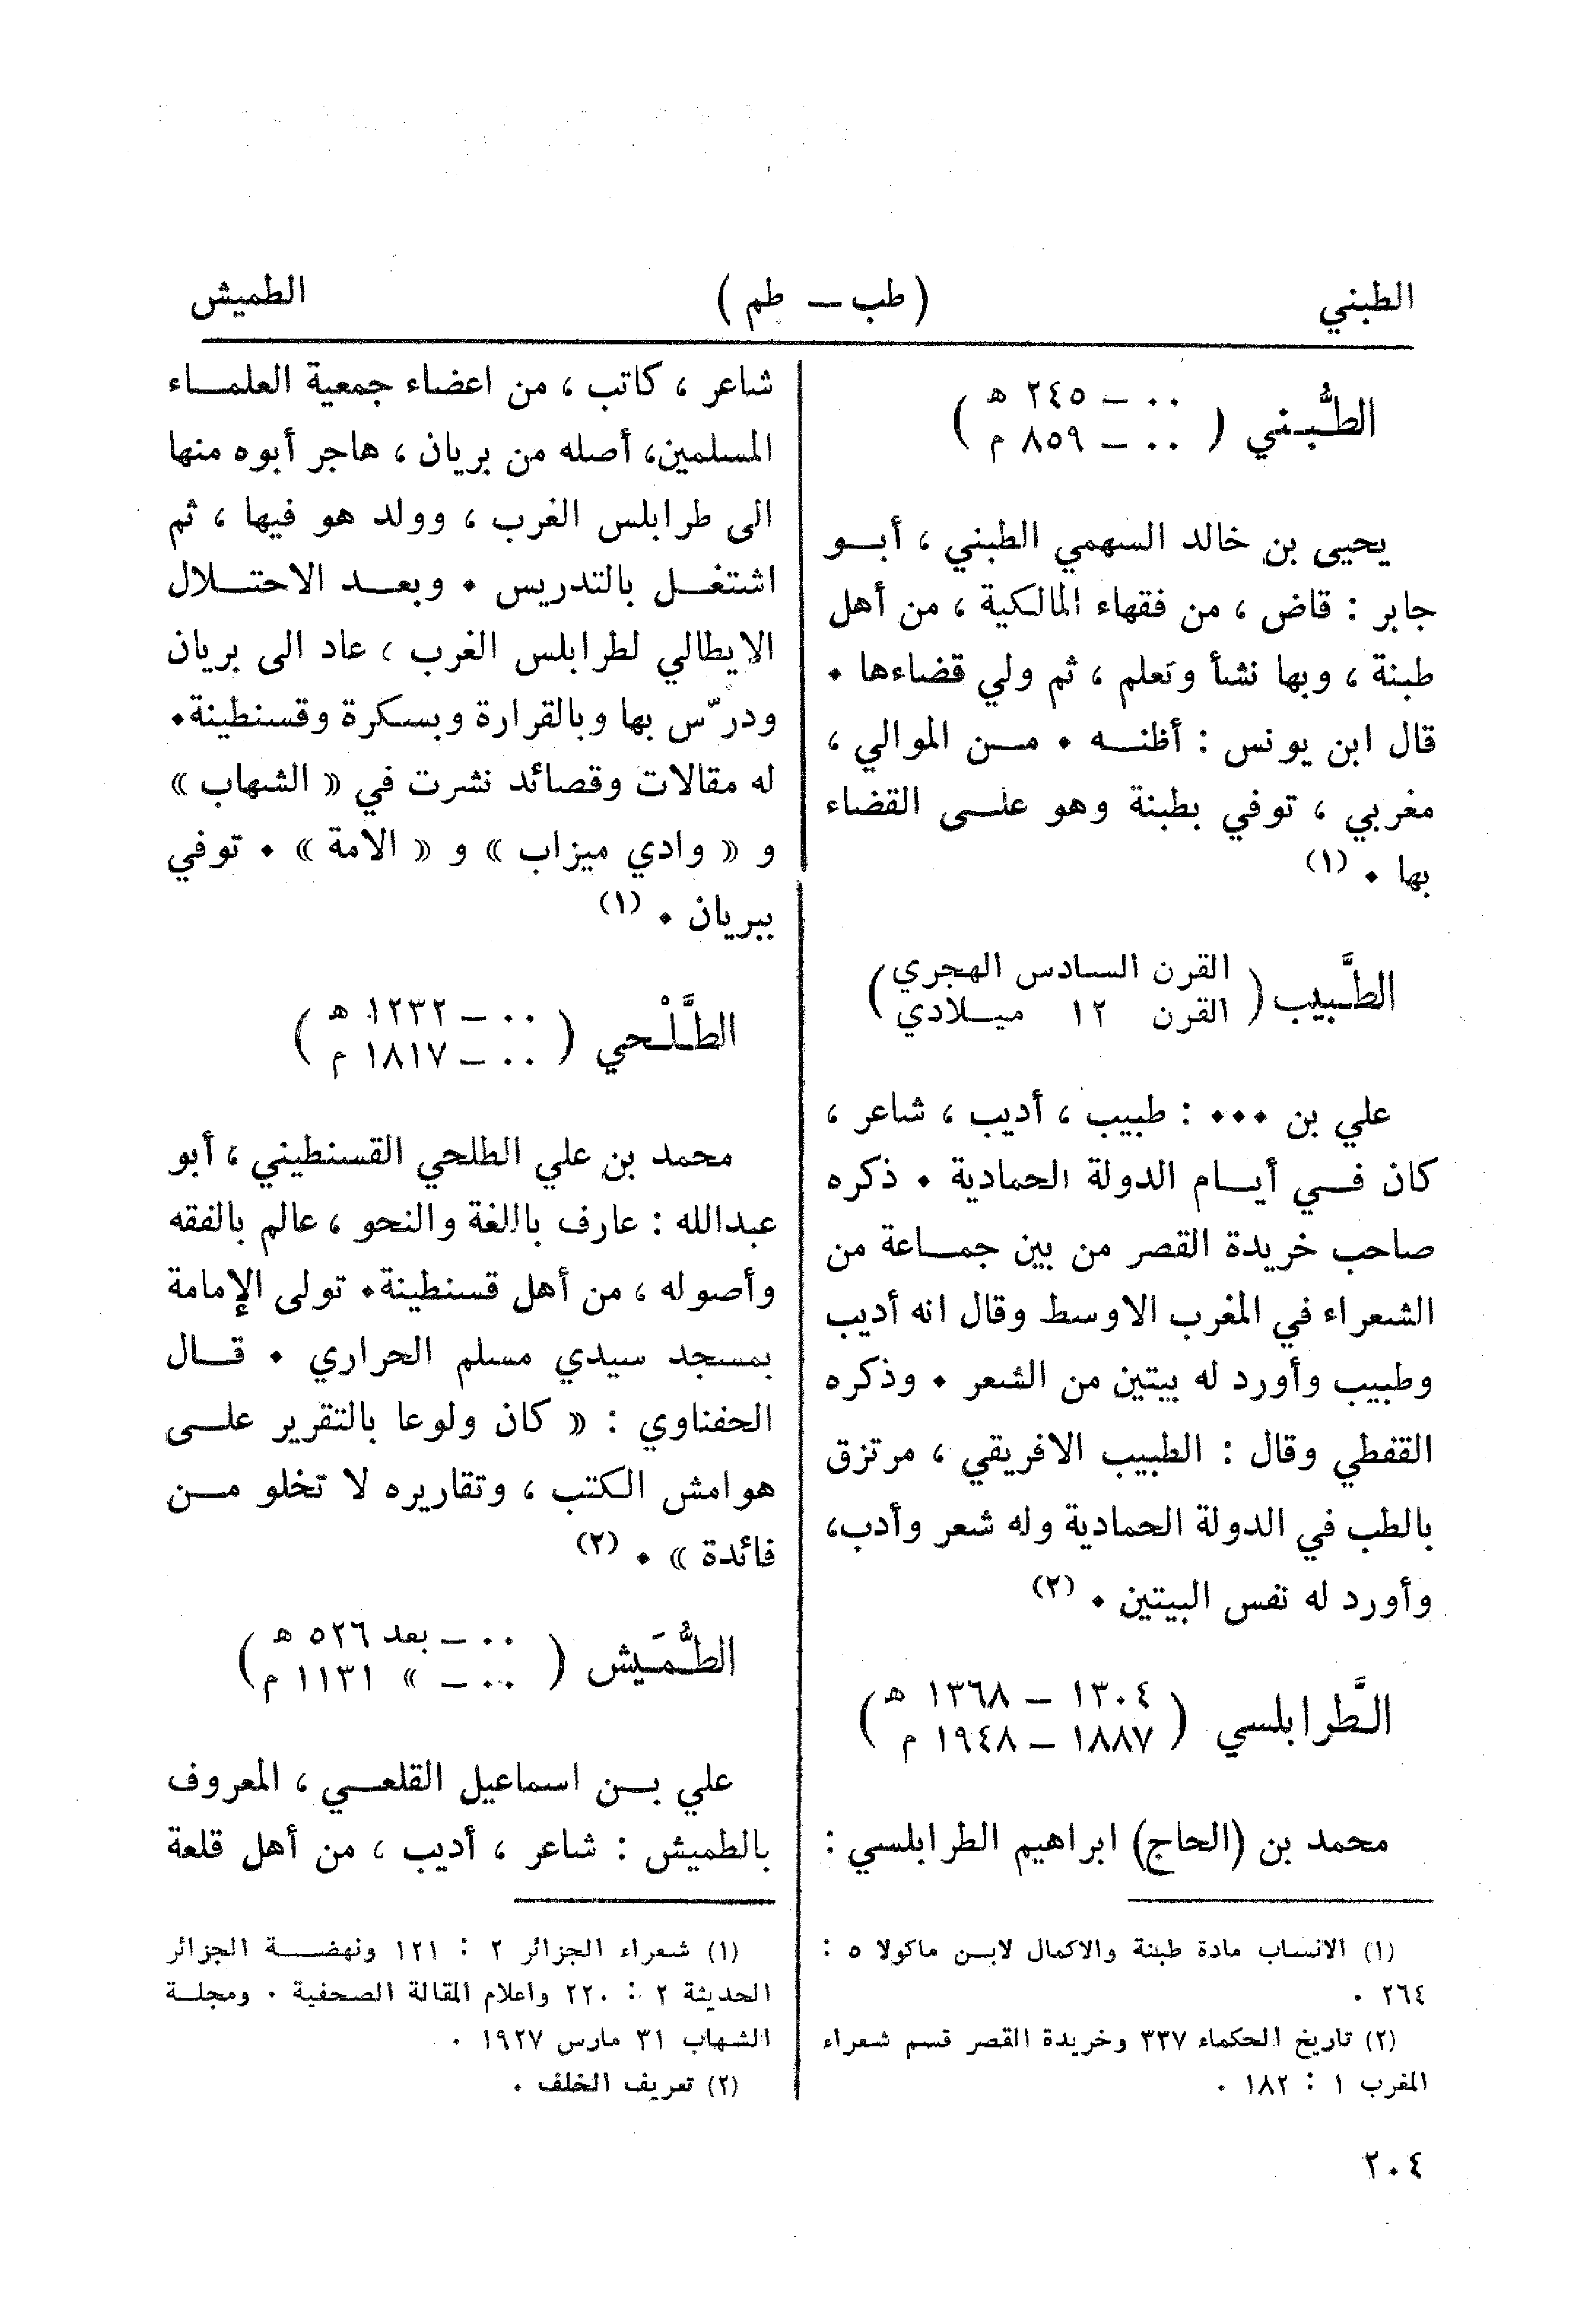 الطبني ( طب ــ طم ) الطميش
الطُّبني ( ٠٠ – ٢٤٥ هـ
٠٠ – ٨٥٩ م )
يحيى بن خالد السهمي الطبني ، أبو
جابر : قاض ، من فقهاء المالكية ، من أهل
طبنة ، وبها نشأ وتعلم ، ثم ولي قضاءها .
قال ابن يونس : أظنه . من الموالي ،
مغربي ، توفي بطبنة وهو على القضاء
بها . (١)
الطَّبيب ( القرن السادس الهجري
القرن ١٢ ميلادي )
علي بن ... : طبيب ، أديب ، شاعر ،
كان في أيام الدولة الحمادية . ذكره
صاحب خريدة القصر من بين جماعة من
الشعراء في المغرب الاوسط وقال انه أديب
وطبيب وأورد له بيتين من الشعر . وذكره
القفطي وقال : الطبيب الافريقي ، مرتزق
بالطب في الدولة الحمادية وله شعر وأدب،
وأورد له نفس البيتين . (٢)
الطَّرابلسي ( ١٣٠٤ – ١٣٦٨ هـ
١٨٨٧ – ١٩٤٨ م )
محمد بن (الحاج) ابراهيم الطرابلسي :
(١) الانساب مادة طبنة والاكمال لابن ماكولا ٥ :
٢٦٤ .
(٢) تاريخ الحكماء ٣٣٧ وخريدة القصر قسم شعراء
المغرب ١ : ١٨٢ .
شاعر ، كاتب ، من اعضاء جمعية العلماء
المسلمين، أصله من بريان ، هاجر أبوه منها
الى طرابلس الغرب ، وولد هو فيها ، ثم
اشتغل بالتدريس . وبعد الاحتلال
الايطالي لطرابلس الغرب ، عاد الى بريان
ودرّس بها وبالقرارة وبسكرة وقسنطينة.
له مقالات وقصائد نشرت في « الشهاب »
و « وادي ميزاب » و « الامة » . توفي
ببريان . (١)
الطَّلْحي ( ٠٠ – ١٢٣٢ هـ
٠٠ – ١٨١٧ م )
محمد بن علي الطلحي القسنطيني ، أبو
عبدالله : عارف باللغة والنحو ، عالم بالفقه
وأصوله ، من أهل قسنطينة. تولى الإمامة
بمسجد سيدي مسلم الحراري . قال
الحفناوي : « كان ولوعا بالتقرير على
هوامش الكتب ، وتقاريره لا تخلو من
فائدة » . (٢)
الطُّمَيش ( ٠٠ – بعد ٥٢٦ هـ
٠٠ – » ١١٣١ م )
علي بن اسماعيل القلعي ، المعروف
بالطميش : شاعر ، أديب ، من أهل قلعة
(١) شعراء الجزائر ٢ : ١٢١ ونهضة الجزائر
الحديثة ٢ : ٢٢٠ واعلام المقالة الصحفية . ومجلة
الشهاب ٣١ مارس ١٩٢٧ .
(٢) تعريف الخلف .
٢٠٤